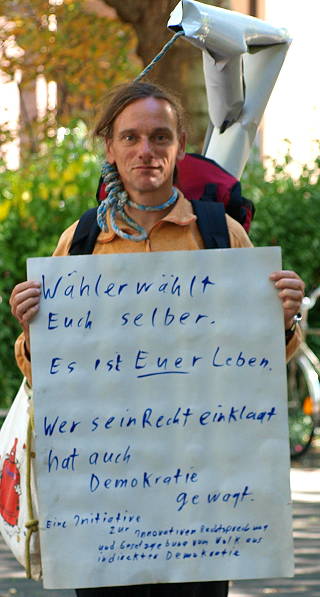 Wähler wählt
Euch selber.
Es ist Euer Leben.
Wer sein Recht einklagt
hat auch
Demokratie
gewagt.
Eine Initiative
zur innovativen Rechtsprechung
und Gesetzgebung vom Volk aus
indirekter Demokratie